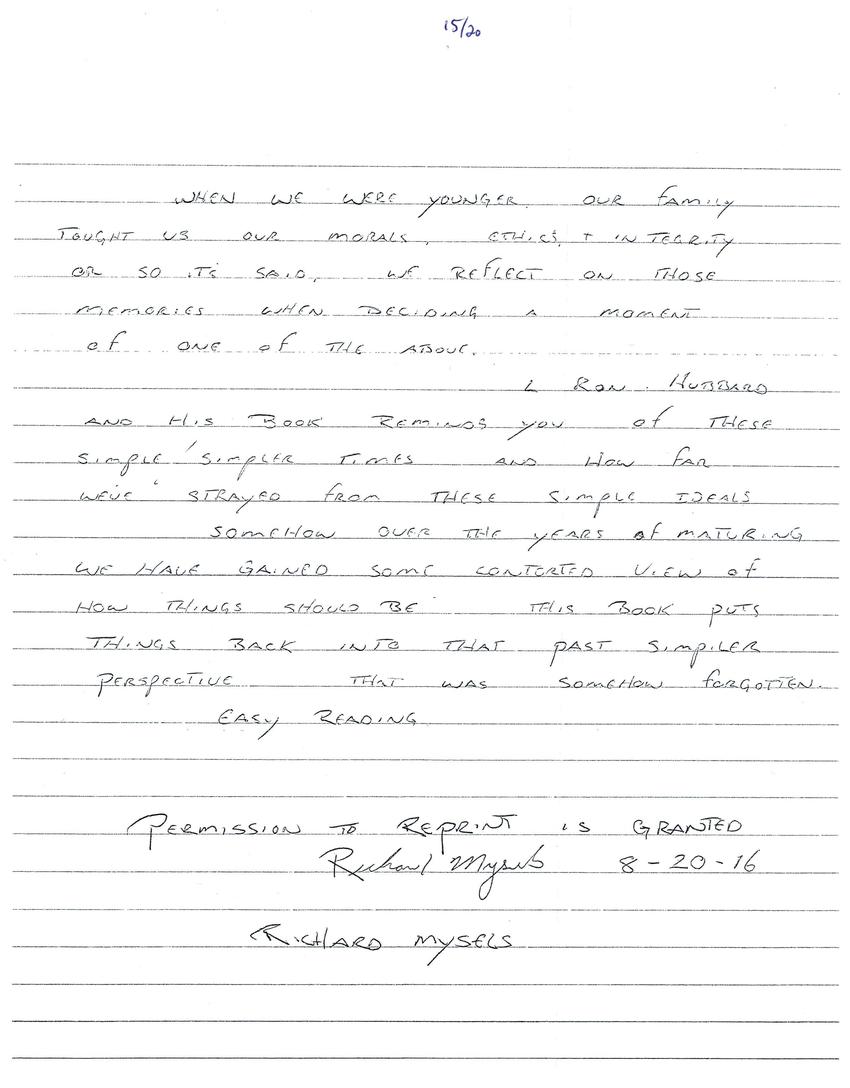 15/20
WHEN WE WERE YOUNGER. OUR FAMILY
TOUGHT US OUR MORALS, ETHICS, + INTEGRITY
OR SO IT'S SAID. WE REFLECT ON THOSE
MEMORIES WHEN DECIDING A MOMENT
of ONE of THE ABOVE.
L RON. HUBBARD
AND HIS BOOK REMINDS YOU of THESE
SIMPLE / SIMPLER TIMES AND HOW FAR
WE'VE STRAYED FROM THESE SIMPLE IDEALS
SOMEHOW OVER THE YEARS of MATURING
WE HAVE GAINED SOME CONTORTED VIEW of
HOW THINGS SHOULD BE THIS BOOK PUTS
THINGS BACK INTO THAT PAST SIMPILER
PERSPECTIVE THAT WAS SOMEHOW FORGOTTEN.
EASY READING
PERMISSION TO REPRINT IS GRANTED
Richard Mysels 8-20-16
RICHARD MYSELS